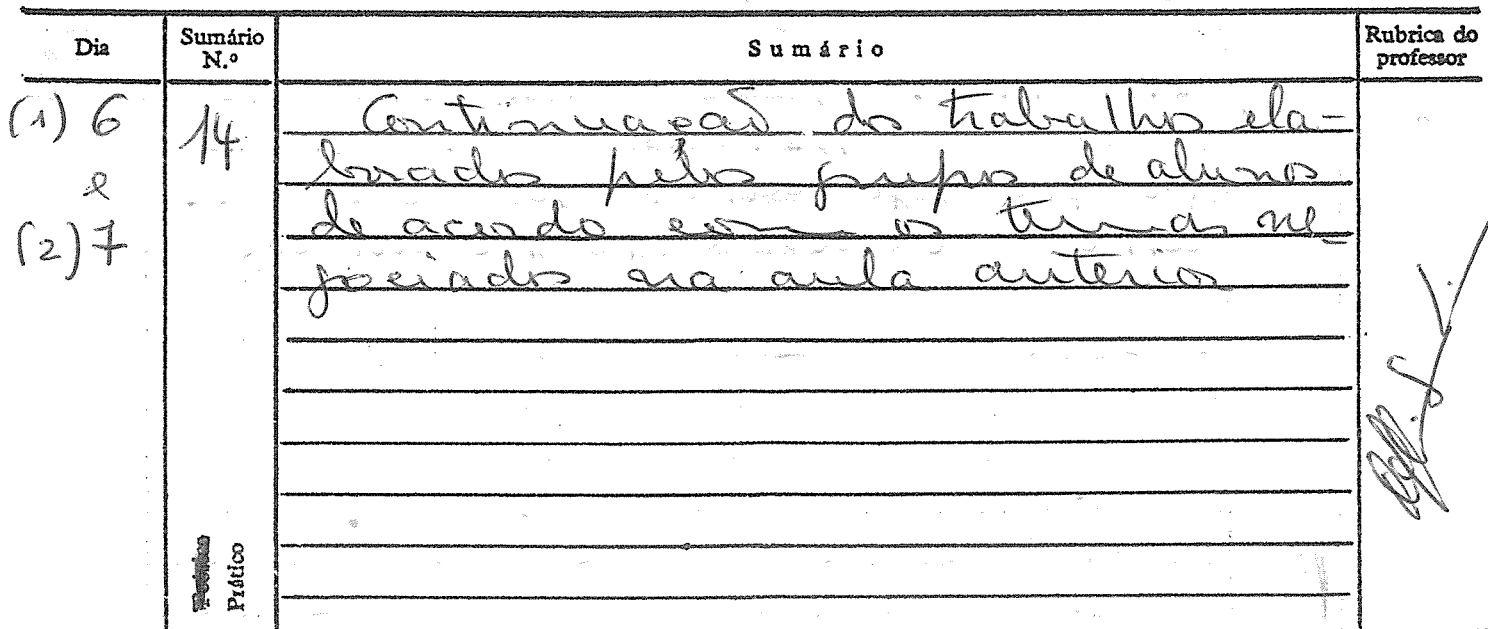 Dia
Sumário
N.º
Sumário
Rubrica do
professor
(1) 6
e
(2) 7
14
Continuação do trabalho ela-
borado pelo grupo de alunos
de acordo com os temas ne-
gociados na aula anterior
Prático